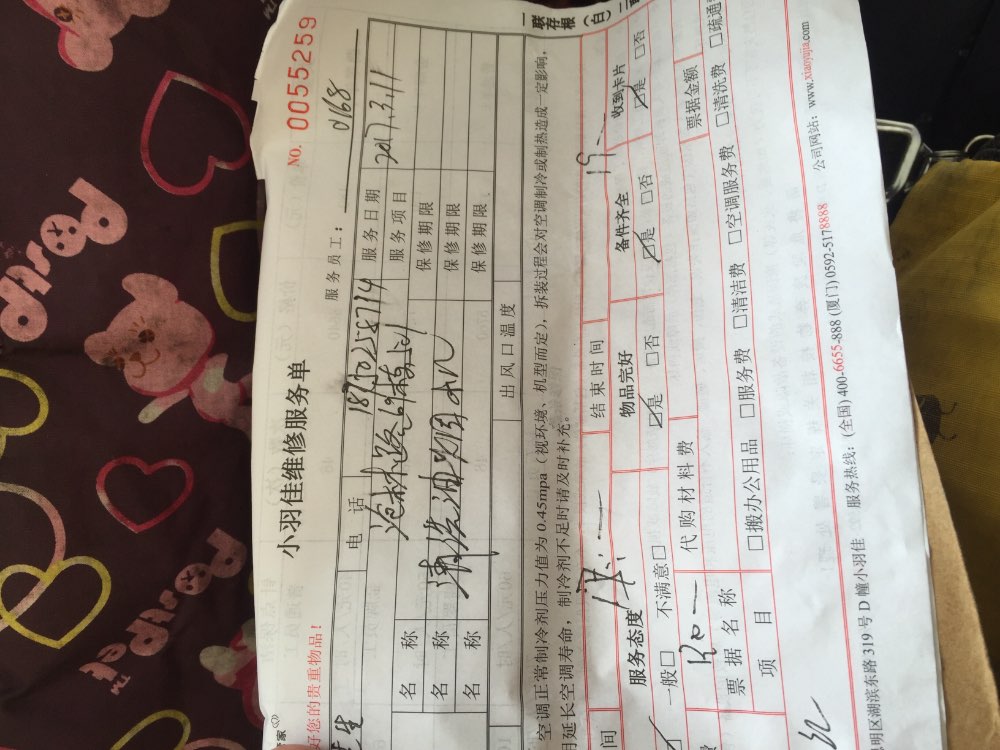 小羽佳维修服务单
NO. 0055259
好您的贵重物品！
服务员工： 0168
先生
电话 服务日期 2017.3.11
服务项目
名称 保修期限
名称 保修期限
名称 保修期限
清洗油烟机
出风口温度
空调正常制冷剂压力值为 0.45mpa（视环境、机型而定），拆装过程会对空调制冷或制热造成一定影响，
用延长空调寿命，制冷剂不足时请及时补充。
间 结束时间 19
服务态度 物品完好 备件齐全 收到卡片
一般□ 不满意□ ☑是 □否 ☑是 □否 ☑是 □否
费 代购材料费
票据名称 票据金额
项目 □搬办公用品 □服务费 □清洁费 □空调服务费 □清洗费 □疏通
明区湖滨东路 319 号 D 幢小羽佳 服务热线：(全国) 400-6655-888 (厦门) 0592-5178888 公司网站：www.xiaoyujia.com
一联存根（白）
Postpet
Postpet™